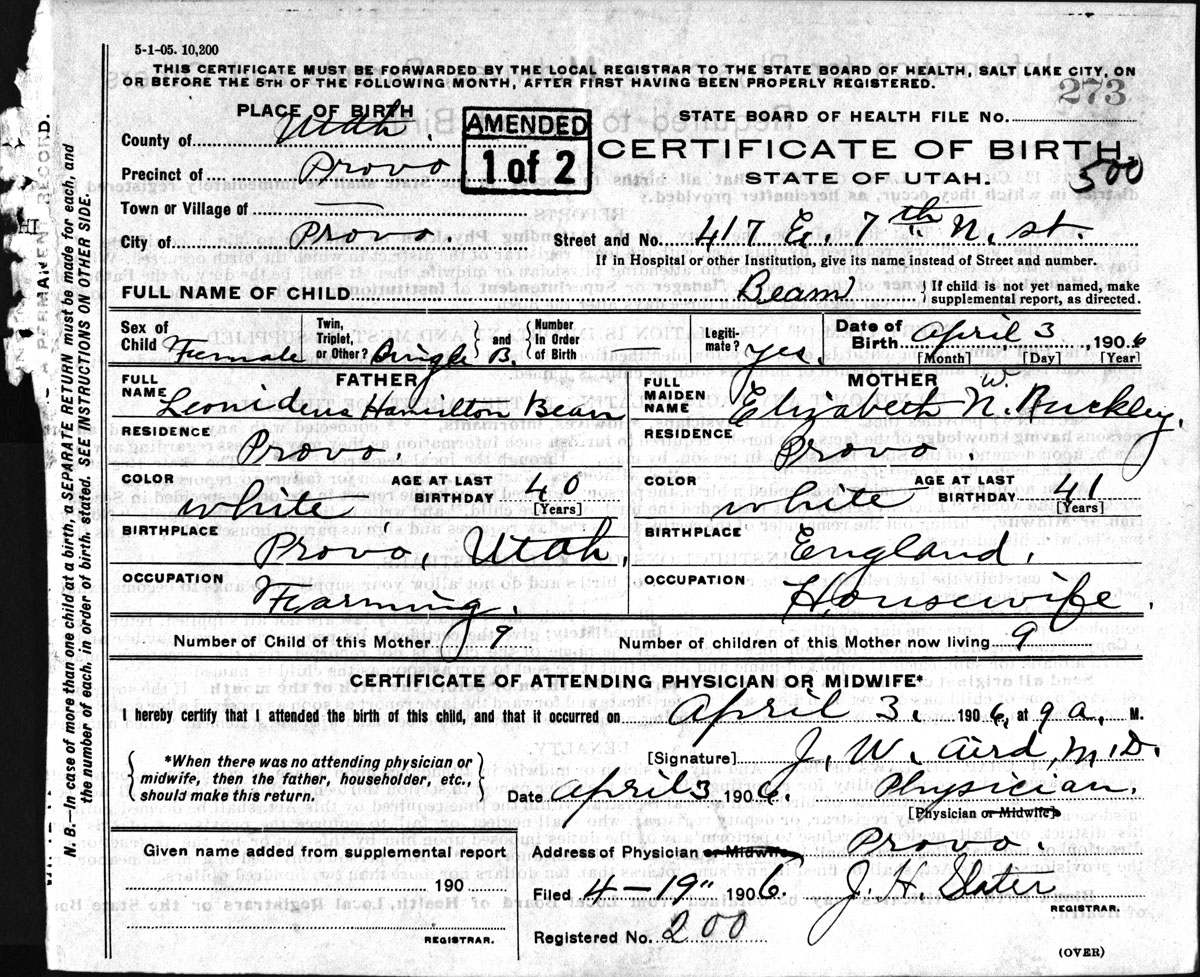 5-1-05. 10,200
THIS CERTIFICATE MUST BE FORWARDED BY THE LOCAL REGISTRAR TO THE STATE BOARD OF HEALTH, SALT LAKE CITY, ON
OR BEFORE THE 5TH OF THE FOLLOWING MONTH, AFTER FIRST HAVING BEEN PROPERLY REGISTERED.
273
PLACE OF BIRTH
STATE BOARD OF HEALTH FILE NO.
County of Utah.
AMENDED
1 of 2
CERTIFICATE OF BIRTH
Precinct of Provo
STATE OF UTAH.
500
Town or Village of —
City of Provo
Street and No. 417 E. 7th N. st.
If in Hospital or other Institution, give its name instead of Street and number.
FULL NAME OF CHILD Bean
{ If child is not yet named, make
supplemental report, as directed.
Sex of Child Female
Twin, Triplet, or Other? Single } and { Number In Order of Birth
B.
Legiti- mate? yes.
Date of Birth April 3, 1906
[Month] [Day] [Year]
FATHER
FULL NAME Leonideus Hamilton Bean
MOTHER
FULL MAIDEN NAME Elizabeth N. Buckley.
W.
RESIDENCE Provo.
RESIDENCE Provo
COLOR white
AGE AT LAST BIRTHDAY 40
[Years]
COLOR white
AGE AT LAST BIRTHDAY 41
[Years]
BIRTHPLACE Provo, Utah.
BIRTHPLACE England.
OCCUPATION Farming.
OCCUPATION Housewife.
Number of Child of this Mother 9
Number of children of this Mother now living 9
CERTIFICATE OF ATTENDING PHYSICIAN OR MIDWIFE*
I hereby certify that I attended the birth of this child, and that it occurred on April 3, 1906, at 9 a. M.
{ *When there was no attending physician or
midwife, then the father, householder, etc.,
should make this return. }
[Signature] J. W. Aird, M.D.
Date April 3 1906 Physician.
[Physician or Midwife]
Given name added from supplemental report
190
REGISTRAR.
Address of Physician or Midwife Provo.
Filed 4-19" 1906. J. H. Slater
REGISTRAR.
Registered No. 200
(OVER)
N. B.—In case of more than one child at a birth, a SEPARATE RETURN must be made for each, and
the number of each, in order of birth, stated. SEE INSTRUCTIONS ON OTHER SIDE.
PERMANENT RECORD.